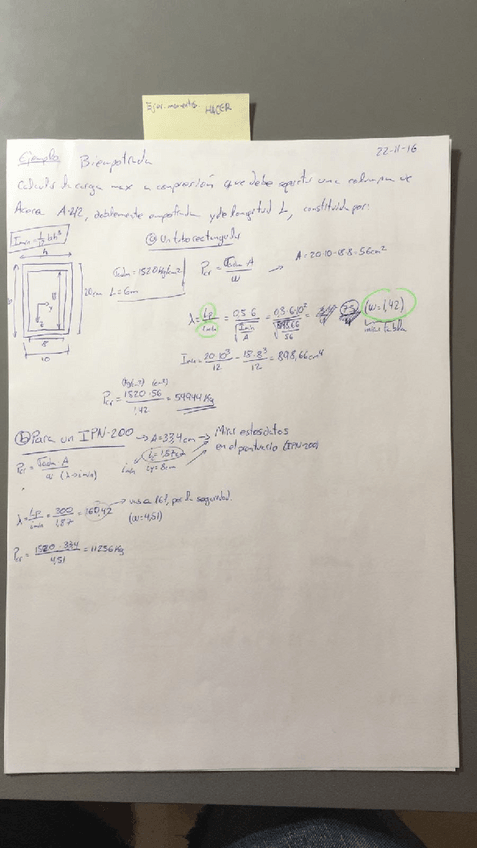 Ejer. momentos. HACER
22-11-16
Ejemplo Biempotrada
Calcular la carga max a compresión que debe soportar una columna de
Acero A-42, doblemente empotrada y de longitud L, constituida por:
Imin = 1/12 b h³
a) Un tubo rectangular
σadm = 1520 Kg/cm²
L = 6m
Pcr = σadm · A / w → A = 20·10 - 18·8 = 56 cm²
20cm
8
10
λ = Lp/imin = 0,5·6/√(Imin/A) = 0,5·6·10²/√(898,66/56) = 75 (w=1,42)
mirar tabla
Imin = 20·10³/12 - 18·8³/12 = 898,66 cm⁴
Pcr = 1520·56/1,42 = 59944 Kg
b) Para un IPN-200 → A = 33,4 cm → Mirar estos datos
en el prontuario (IPN-200)
Pcr = σadm · A / w (λ → imin)
imin
ix = 1,87cm
iy = 8cm
λ = Lp/imin = 300/1,87 = 160,42 → usa 161, por la seguridad.
(w=4,51)
Pcr = 1520·33,4/4,51 = 11256 Kg